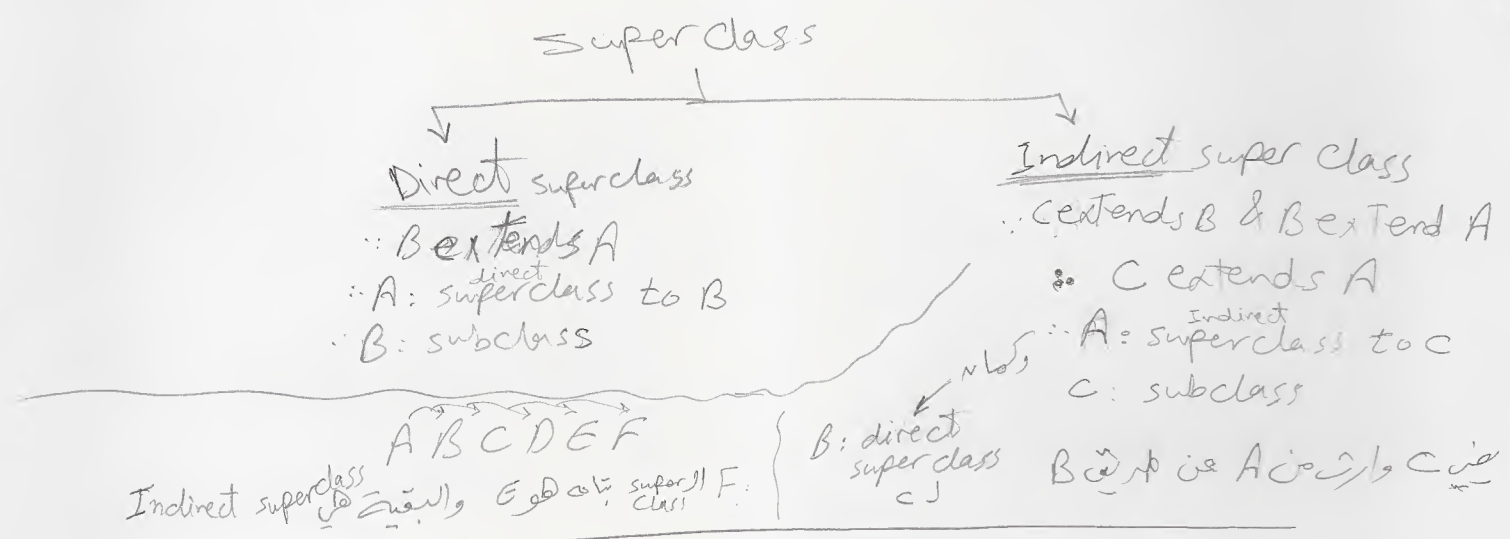 Super class
Direct superclass
∵ B extends A
∴ A: direct superclass to B
∴ B: subclass
Indirect super class
∵ C extends B & B extend A
∴ C extends A
∴ A: Indirect superclass to C
C: subclass
وكمان
B: direct
superclass
لـ C
يعني C وارث من A عن طريق B
A B C D E F
F: الـ super class بتاعه هو E والبقية هي Indirect superclass